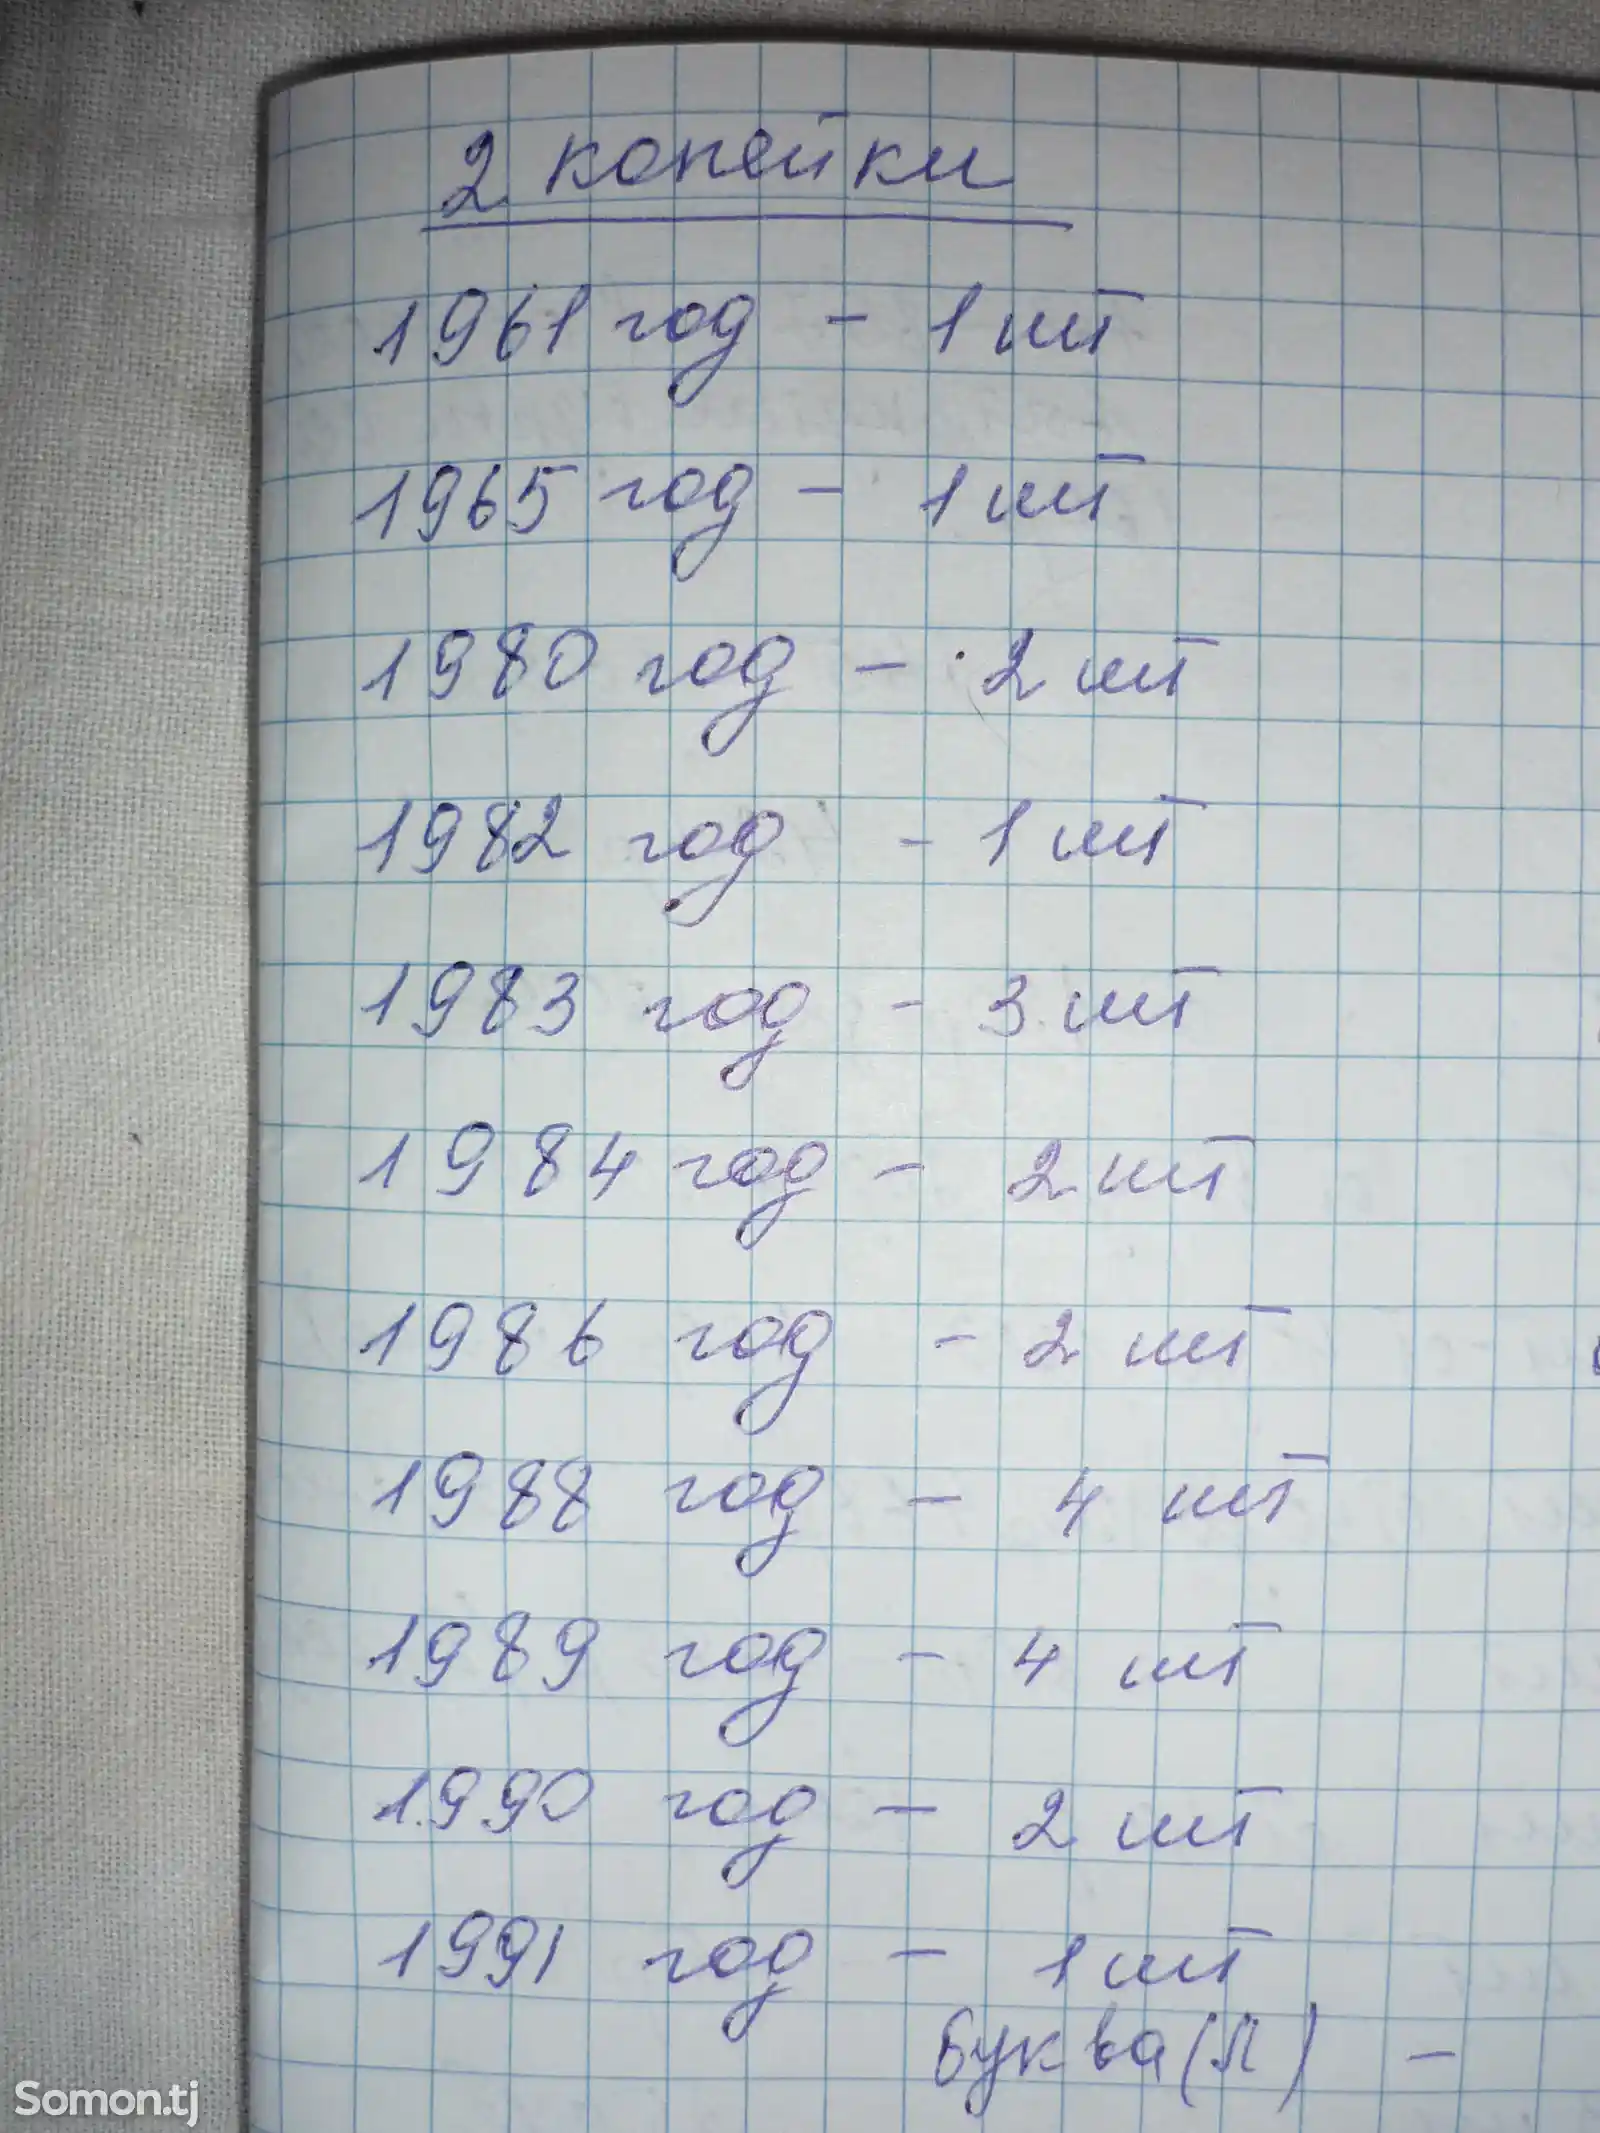 2 копейки
1961 год - 1 шт
1965 год - 1 шт
1980 год - 2 шт
1982 год - 1 шт
1983 год - 3 шт
1984 год - 2 шт
1986 год - 2 шт
1988 год - 4 шт
1989 год - 4 шт
1990 год - 2 шт
1991 год - 1 шт
буква (Л) -
Somon.tj